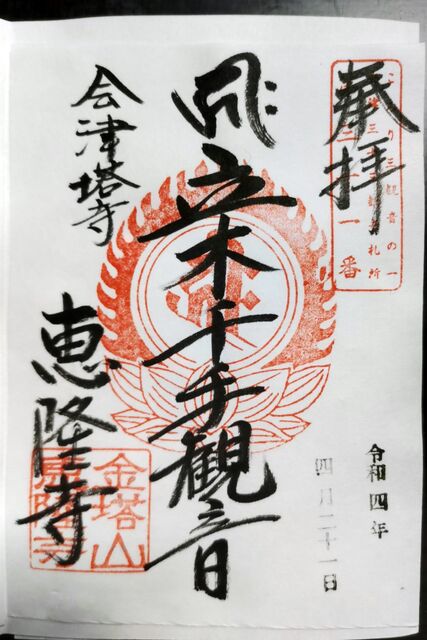 奉拝
三十一番
令和四年
四月二十一日
立木千手観音
会津塔寺
恵隆寺
金塔山
恵隆寺